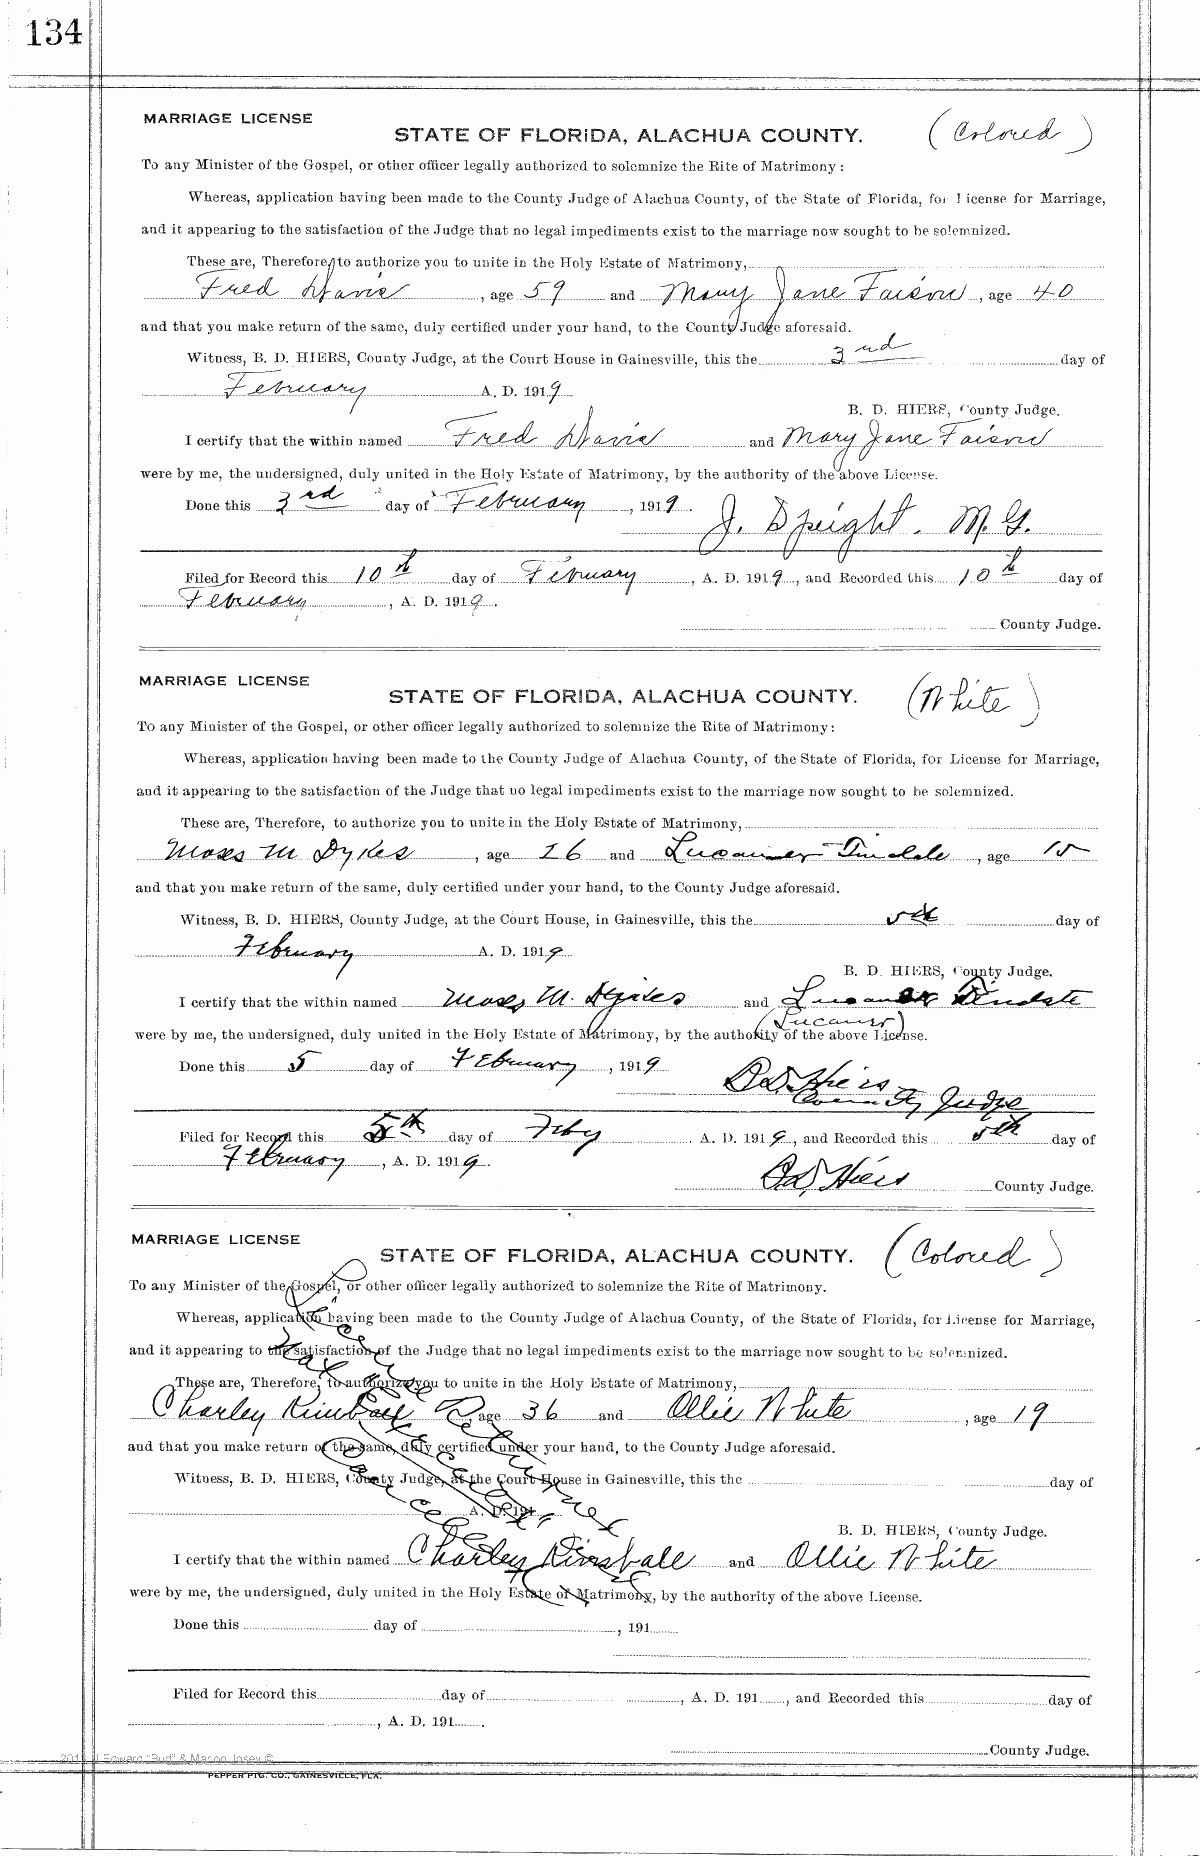 134
MARRIAGE LICENSE
STATE OF FLORIDA, ALACHUA COUNTY. (Colored)
To any Minister of the Gospel, or other officer legally authorized to solemnize the Rite of Matrimony:
Whereas, application having been made to the County Judge of Alachua County, of the State of Florida, for License for Marriage,
and it appearing to the satisfaction of the Judge that no legal impediments exist to the marriage now sought to be solemnized.
These are, Therefore, to authorize you to unite in the Holy Estate of Matrimony,
Fred Davis, age 59 and Mary Jane Faison, age 40
and that you make return of the same, duly certified under your hand, to the County Judge aforesaid.
Witness, B. D. HIERS, County Judge, at the Court House in Gainesville, this the 3rd day of
February A. D. 1919
B. D. HIERS, County Judge.
I certify that the within named Fred Davis and Mary Jane Faison
were by me, the undersigned, duly united in the Holy Estate of Matrimony, by the authority of the above License.
Done this 3rd day of February, 1919.
J. Speight. M. G.
Filed for Record this 10th day of February, A. D. 1919, and Recorded this 10th day of
February, A. D. 1919.
County Judge.
MARRIAGE LICENSE
STATE OF FLORIDA, ALACHUA COUNTY. (White)
To any Minister of the Gospel, or other officer legally authorized to solemnize the Rite of Matrimony:
Whereas, application having been made to the County Judge of Alachua County, of the State of Florida, for License for Marriage,
and it appearing to the satisfaction of the Judge that no legal impediments exist to the marriage now sought to be solemnized.
These are, Therefore, to authorize you to unite in the Holy Estate of Matrimony,
Moses M Dykes, age 26 and Tindale, age 15
and that you make return of the same, duly certified under your hand, to the County Judge aforesaid.
Witness, B. D. HIERS, County Judge, at the Court House, in Gainesville, this the 5th day of
February A. D. 1919
B. D. HIERS, County Judge.
I certify that the within named Moses M. Dykes and
were by me, the undersigned, duly united in the Holy Estate of Matrimony, by the authority of the above License.
Done this 5 day of February, 1919
B D. Hiers
County Judge
Filed for Record this 5th day of Feby A. D. 1919, and Recorded this 5th day of
February, A. D. 1919.
B D. Hiers County Judge.
MARRIAGE LICENSE
STATE OF FLORIDA, ALACHUA COUNTY. (Colored)
To any Minister of the Gospel, or other officer legally authorized to solemnize the Rite of Matrimony.
Whereas, application having been made to the County Judge of Alachua County, of the State of Florida, for License for Marriage,
and it appearing to the satisfaction of the Judge that no legal impediments exist to the marriage now sought to be solemnized.
These are, Therefore, to authorize you to unite in the Holy Estate of Matrimony,
Charley Kimball, age 36 and Ollie White, age 19
and that you make return of the same, duly certified under your hand, to the County Judge aforesaid.
Witness, B. D. HIERS, County Judge, at the Court House in Gainesville, this the day of
A. D. 191
License Returned
Not
B. D. HIERS, County Judge.
I certify that the within named Charley Kimball and Ollie White
were by me, the undersigned, duly united in the Holy Estate of Matrimony, by the authority of the above License.
Done this day of, 191
Filed for Record this day of, A. D. 191, and Recorded this day of
, A. D. 191.
County Judge.
PEPPER PTG. CO., GAINESVILLE, FLA.